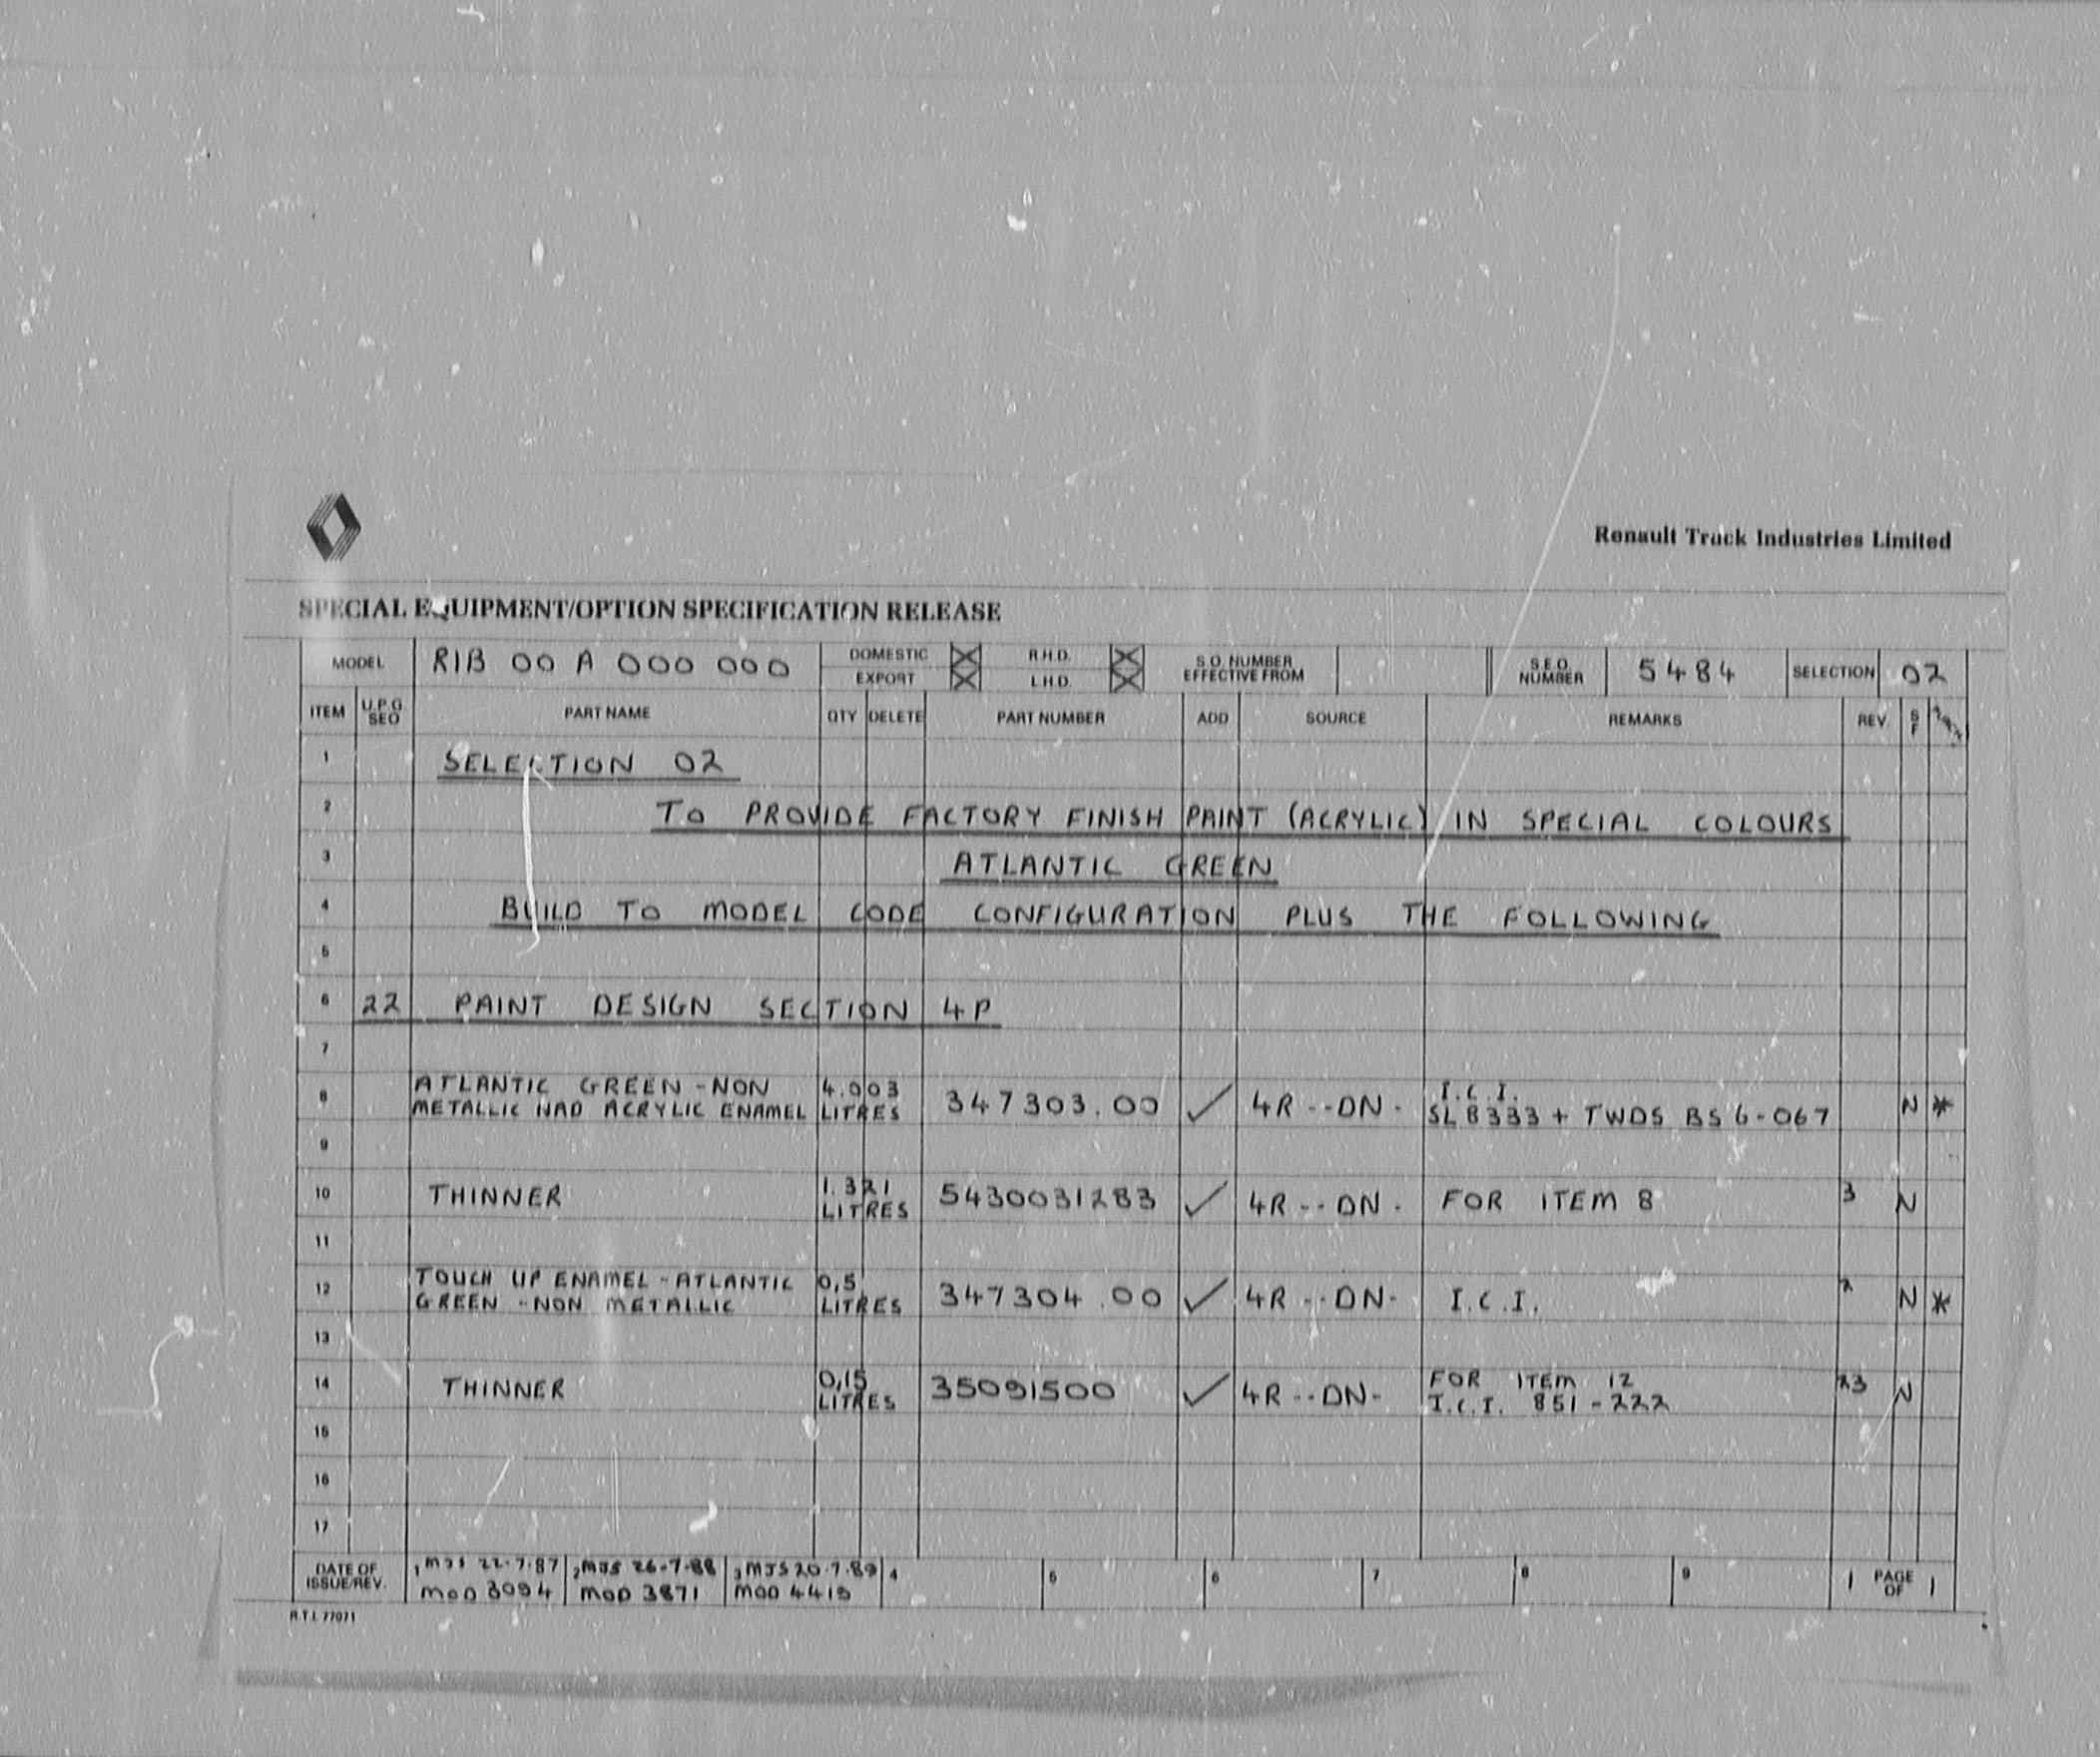 Renault Truck Industries Limited
SPECIAL EQUIPMENT/OPTION SPECIFICATION RELEASE
MODEL R1B 00 A 000 000 DOMESTIC R.H.D. S.O. NUMBER S.E.O. 5484 SELECTION 02
EXPORT L.H.D. EFFECTIVE FROM NUMBER
ITEM U.P.G. SEO PART NAME QTY DELETE PART NUMBER ADD SOURCE REMARKS REV S F
1 SELECTION 02
2 TO PROVIDE FACTORY FINISH PAINT (ACRYLIC) IN SPECIAL COLOURS
3 ATLANTIC GREEN
4 BUILD TO MODEL CODE CONFIGURATION PLUS THE FOLLOWING
5
6 22 PAINT DESIGN SECTION 4P
7
8 ATLANTIC GREEN - NON 4.003 347303.00 ✓ 4R --DN- I.C.I. N *
METALLIC NAD ACRYLIC ENAMEL LITRES SL8333 + TWDS BS 6-067
9
10 THINNER 1.321 5430031283 ✓ 4R --DN- FOR ITEM 8 3 N
LITRES
11
12 TOUCH UP ENAMEL - ATLANTIC 0,5 347304.00 ✓ 4R --DN- I.C.I. 2 N *
GREEN - NON METALLIC LITRES
13
14 THINNER 0,15 35091500 ✓ 4R --DN- FOR ITEM 12 23 N
LITRES I.C.I. 851-222
15
16
17
DATE OF 1 MJS 22-7-87 2 MJS 26-7-88 3 MJS 20-7-89 4 5 6 7 8 9 1 PAGE 1
ISSUE/REV. MOD 3094 MOD 3871 MOD 4419 OF
R.T.I. 77071